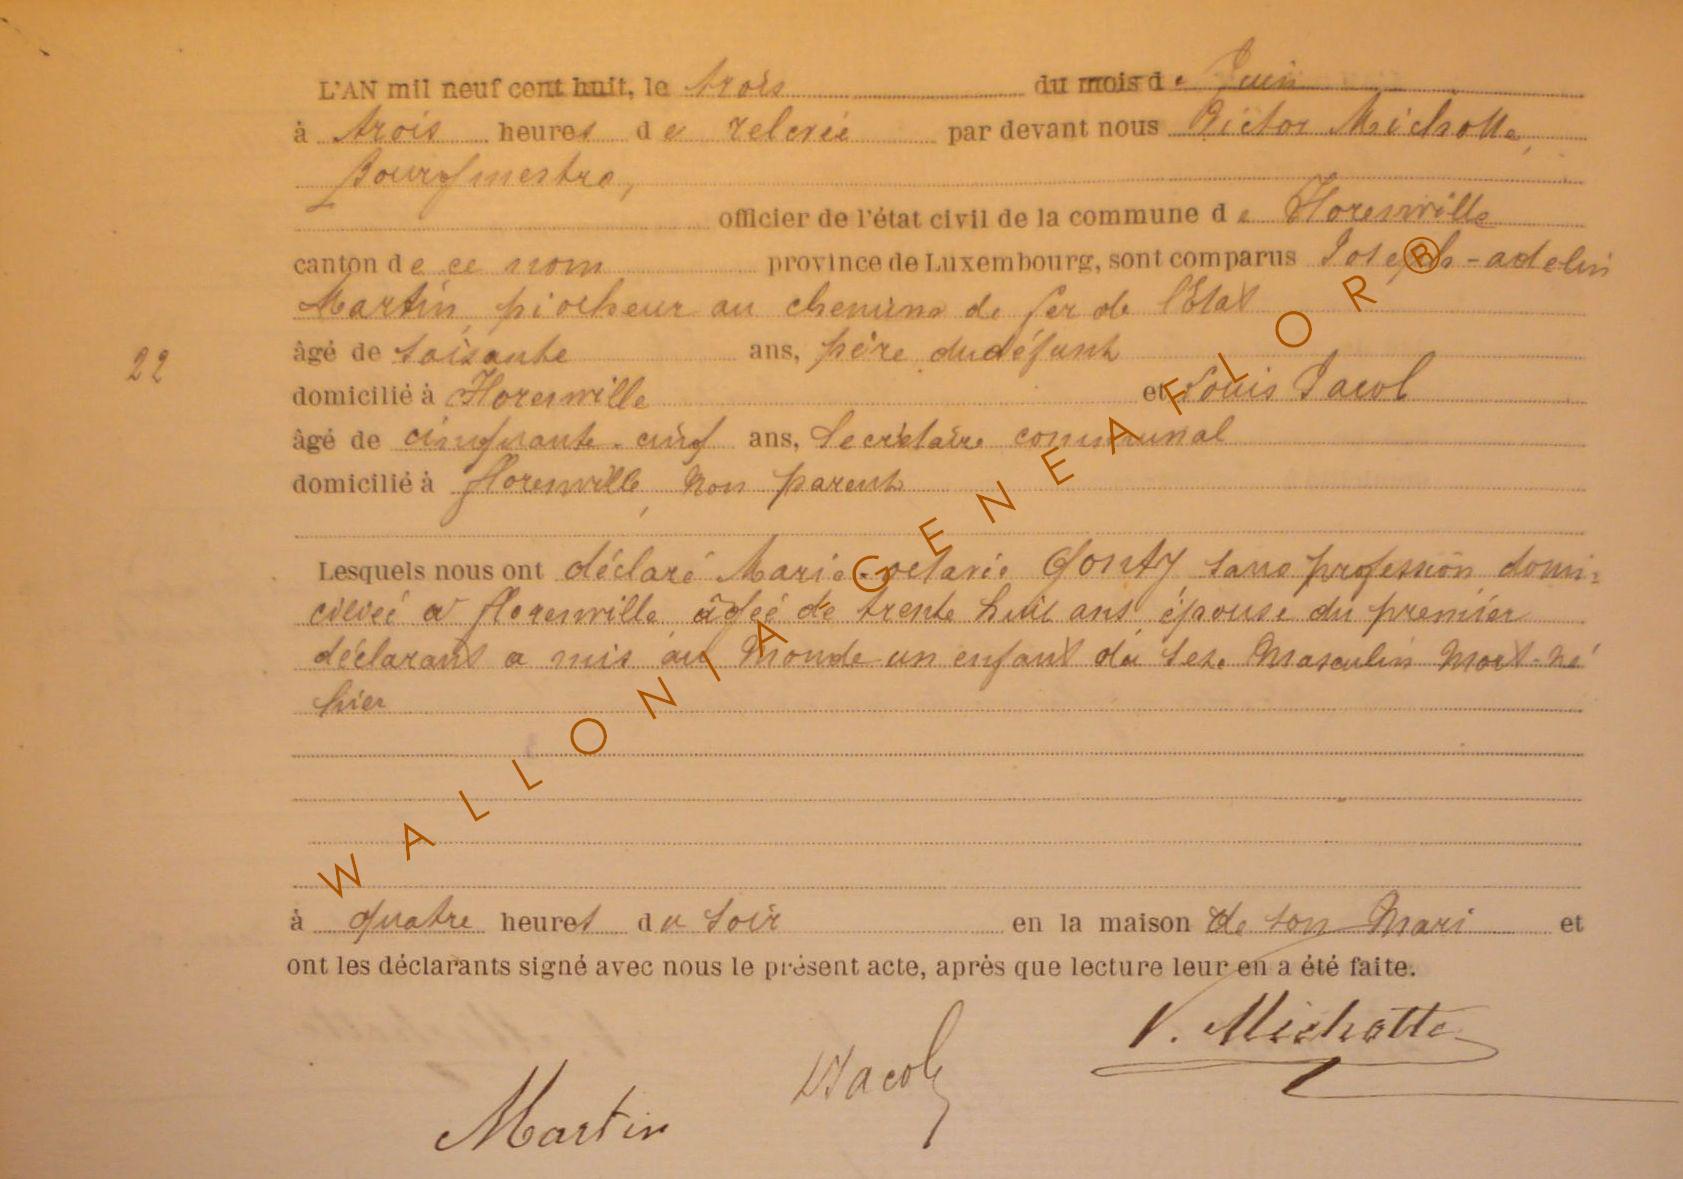 L'AN mil neuf cent huit, le trois du mois de Juin
à trois heures de relevée par devant nous Victor Michotte,
Bourgmestre,
officier de l'état civil de la commune de Florenville
canton de ce nom province de Luxembourg, sont comparus Joseph-adelin
Martin, piocheur au chemins de fer de l'Etat
22
âgé de soisante ans, père du défunt
domicilié à Florenville et Louis Jacob
âgé de cinquante-cinq ans, Secrétaire communal
domicilié à florenville, non parent
Lesquels nous ont déclaré Marie-octavie Gonty sans profession domi-
ciliée a florenville, âgée de trente huit ans épouse du premier
déclarant a mis au Monde un enfant du sexe Masculin Mort-né
hier
à quatre heures du soir en la maison de son Mari et
ont les déclarants signé avec nous le présent acte, après que lecture leur en a été faite.
V. Michotte
LJacob
Martin
WALLONIA GENEAFLOR®